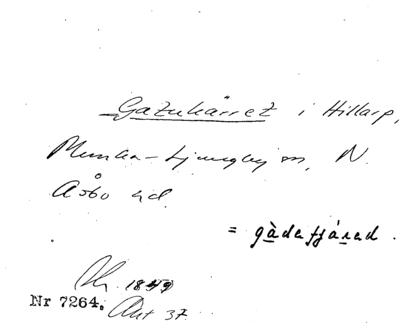 Gatukärret i Hillarp,
Munka-Ljungby sn, N.
Åsbo hd.
= gàdaꞔáred.
1849
Nr 7264. Ant 37.